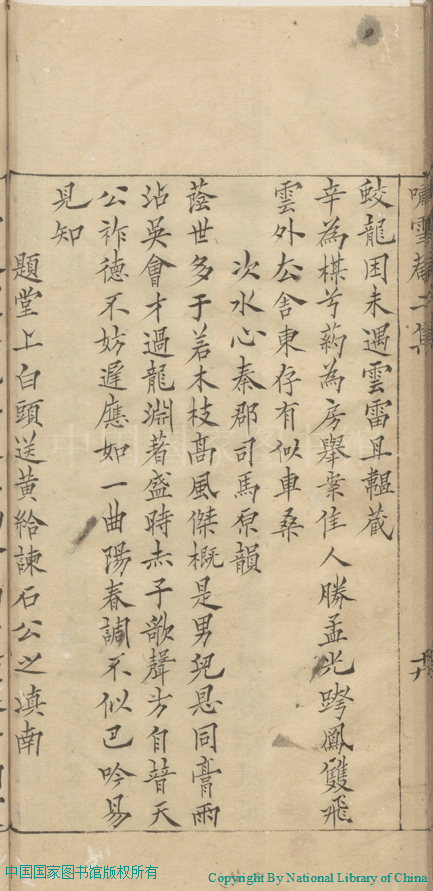 嘯雪菴二集
蛟龍困未遇雲雷且韞藏
辛為楳兮葯為房舉案佳人勝孟光跨鳳雙飛
雲外去舍東存有似車桑
次水心秦郡司馬原韻
蔭世多于若木枝高風傑概是男兒恩同膏雨
沾吳會才過龍淵著盛時赤子歌聲歩自替天
公祚德不妨遲應如一曲陽春調不似巴吟易
見知
題堂上白頭送黃給諫石公之滇南
中国国家图书馆版权所有
Copyright By National Library of China